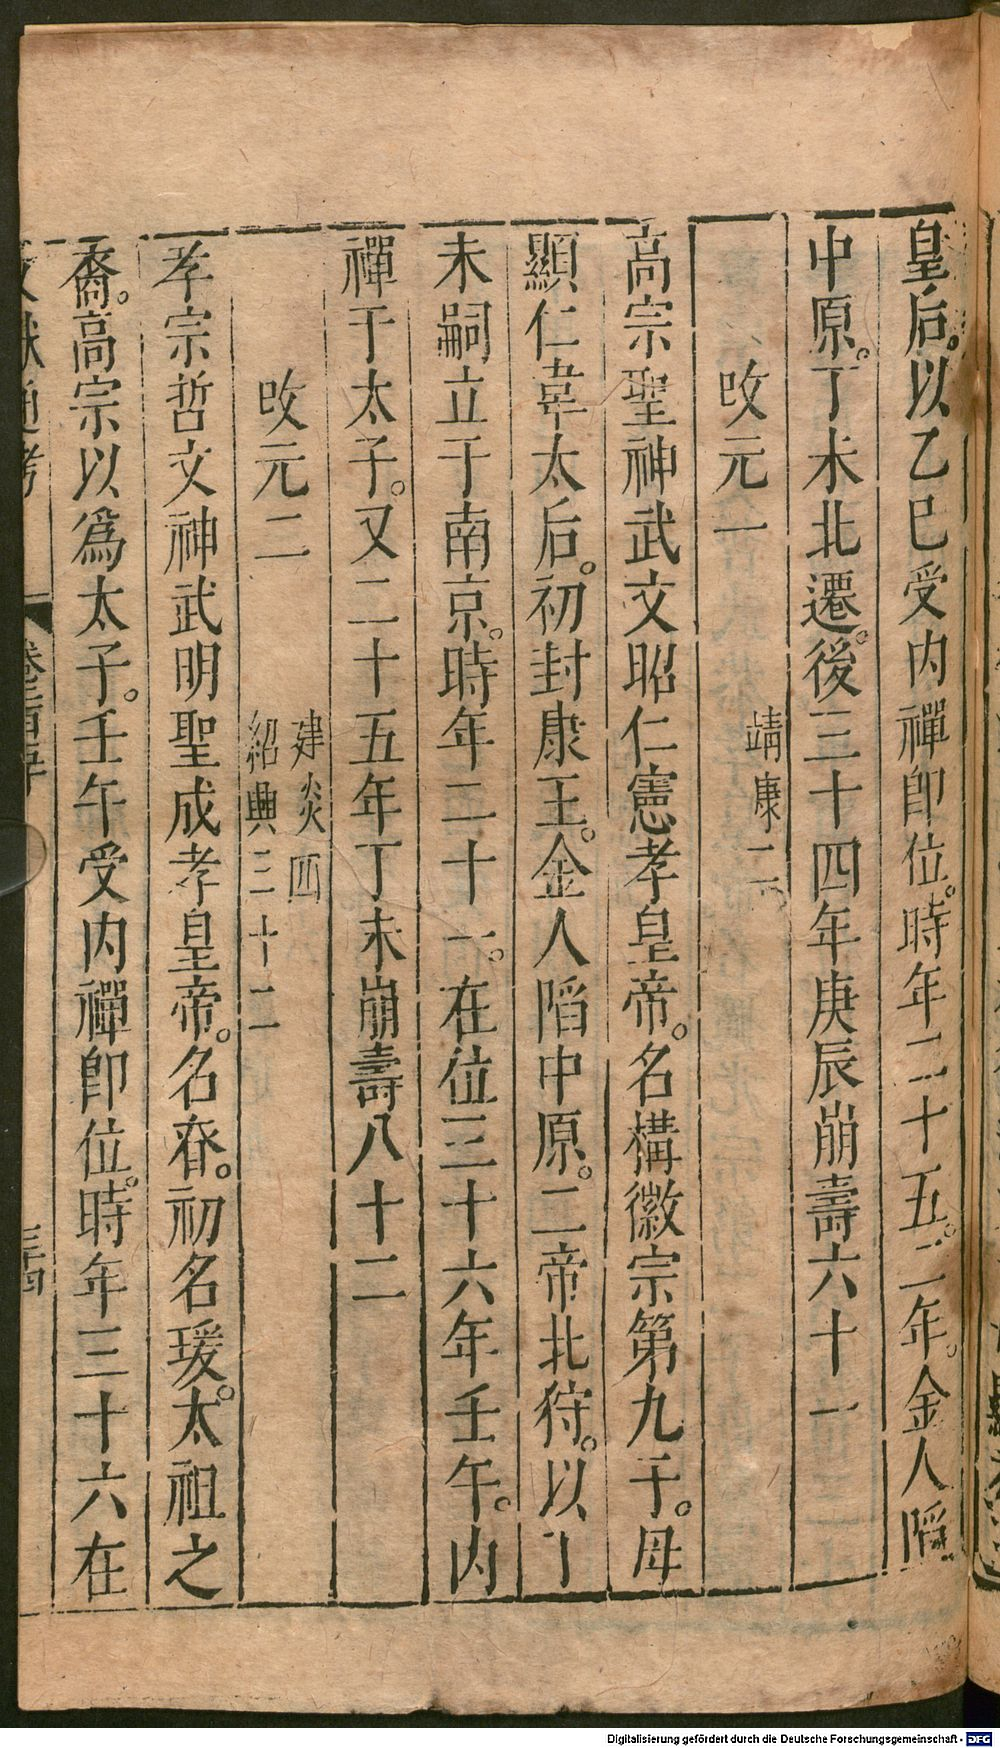 皇后。以乙巳受内禪卽位。時年二十五。二年。金人陷
中原。丁未北遷。後三十四年庚辰崩壽六十一
攺元一
靖康二
高宗聖神武文昭仁憲孝皇帝。名構徽宗第九子。母
顯仁韋太后。初封康王。金人陷中原。二帝北狩。以丁
未嗣立于南京。時年二十一。在位三十六年壬午。内
禪于太子。又二十五年丁未崩壽八十二
攺元二
建炎四
紹興三十二
孝宗哲文神武明聖成孝皇帝。名昚。初名瑗。太祖之
裔。高宗以爲太子。壬午受内禪卽位。時年三十六在
文獻通考
卷二百五十
三十四
Digitalisierung gefördert durch die Deutsche Forschungsgemeinschaft - DFG